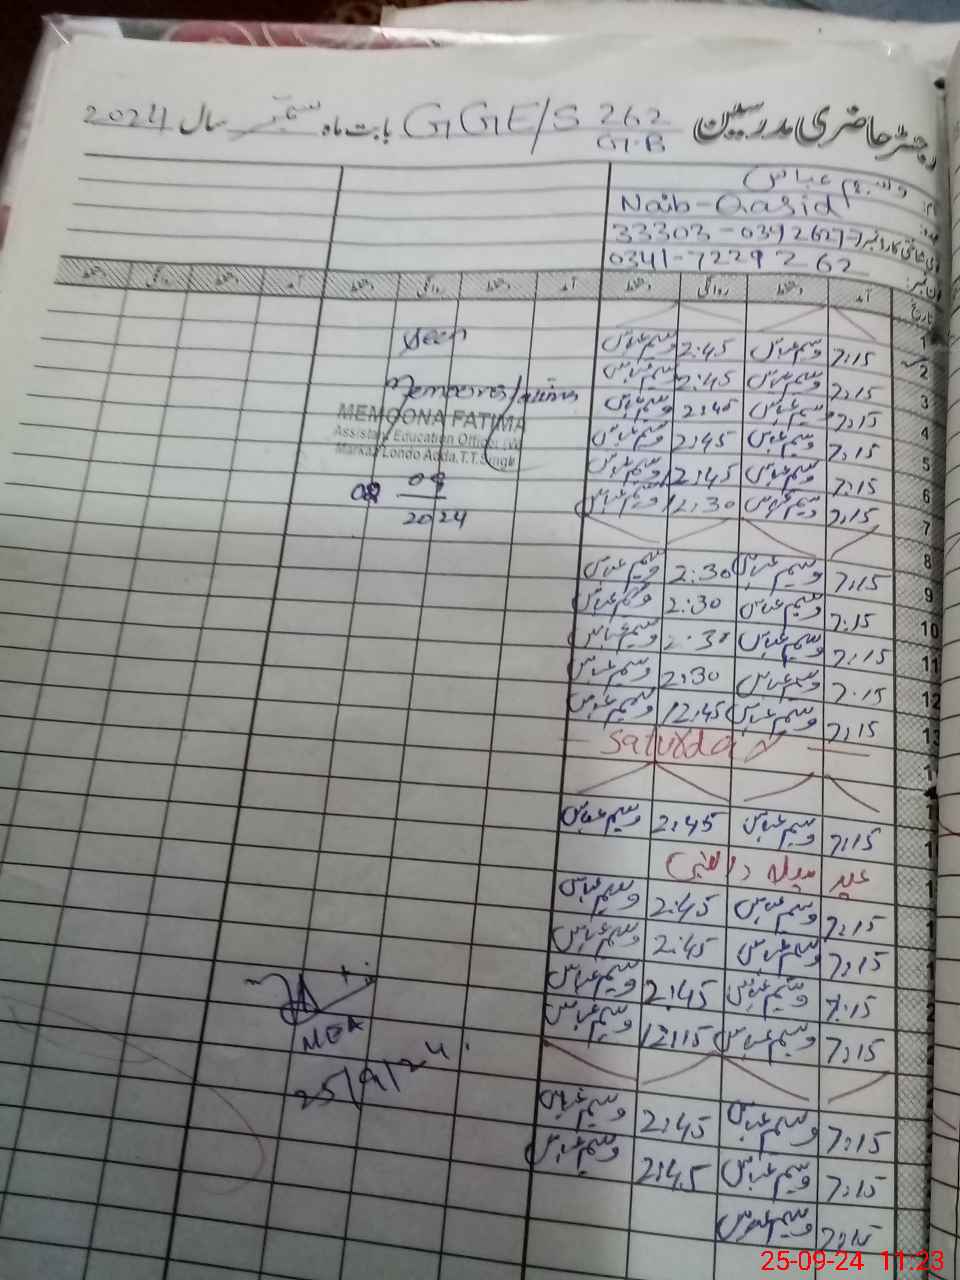 رجسٹر حاضری مدرسین GGE/S 262 G.B بابت ماہ ستمبر سال 2024
وسیم عباس
Naib-Qasid
0341-7229262
تاریخ آمد دستخط روانگی دستخط آمد دستخط روانگی دستخط آمد دستخط روانگی دستخط
1
2 7:15 وسیم عباس 2:45 وسیم عباس
3 7:15 وسیم عباس 2:45 وسیم عباس
4 7:15 وسیم عباس 2:45 وسیم عباس
5 7:15 وسیم عباس 2:45 وسیم عباس
6 7:15 وسیم عباس 12:45 وسیم عباس
7 7:15 وسیم عباس 12:30 وسیم عباس
8
9 7:15 وسیم عباس 2:30 وسیم عباس
10 7:15 وسیم عباس 2:30 وسیم عباس
11 7:15 وسیم عباس 2:30 وسیم عباس
12 7:15 وسیم عباس 2:30 وسیم عباس
13 7:15 وسیم عباس 12:45 وسیم عباس
Saturday
7:15 وسیم عباس 2:45 وسیم عباس
عید میلاد النبی
7:15 وسیم عباس 2:45 وسیم عباس
7:15 وسیم عباس 2:45 وسیم عباس
7:15 وسیم عباس 2:45 وسیم عباس
7:15 وسیم عباس 12:15 وسیم عباس
7:15 وسیم عباس 2:45 وسیم عباس
7:15 وسیم عباس 2:45 وسیم عباس
7:15 وسیم عباس
Seen
Memoona Fatima
MEMOONA FATIMA
Assistant Education Officer (W)
Markaz Londo Adda.T.T.Singh
09
2024
MEA
25/9/24
25-09-24 11:23